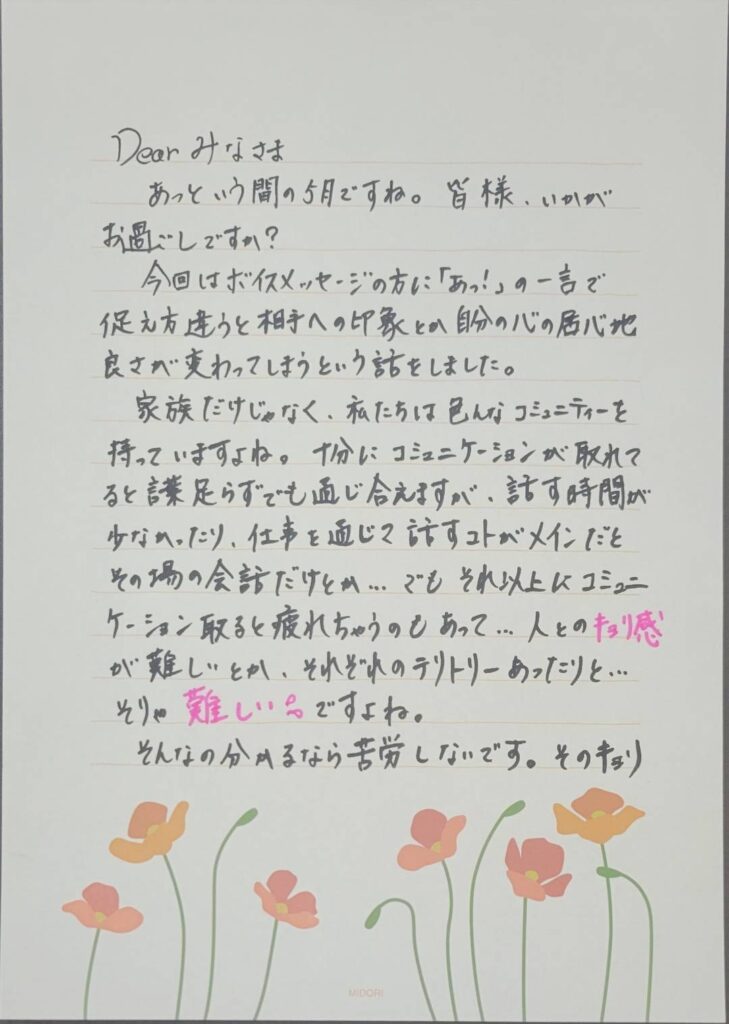 Dear みなさま
あっという間の5月ですね。皆様、いかが
お過ごしですか？
今回はボイスメッセージの方に「あっ！」の一言で
捉え方違うと相手への印象とか自分の心の居心地
良さが変わってしまうという話をしました。
家族だけじゃなく、私たちは色んなコミュニティーを
持っていますよね。十分にコミュニケーションが取れて
ると言葉足らずでも通じ合えますが、話す時間が
少なかったり、仕事を通じて話すコトがメインだと
その場の会話だけとか…でもそれ以上にコミュニ
ケーション取ると疲れちゃうのもあって…人とのキョリ感
が難しいとか、それぞれのテリトリーあったりと…
そりゃ難しいですよね。
そんなの分かるなら苦労しないです。そのキョリ
MIDORI